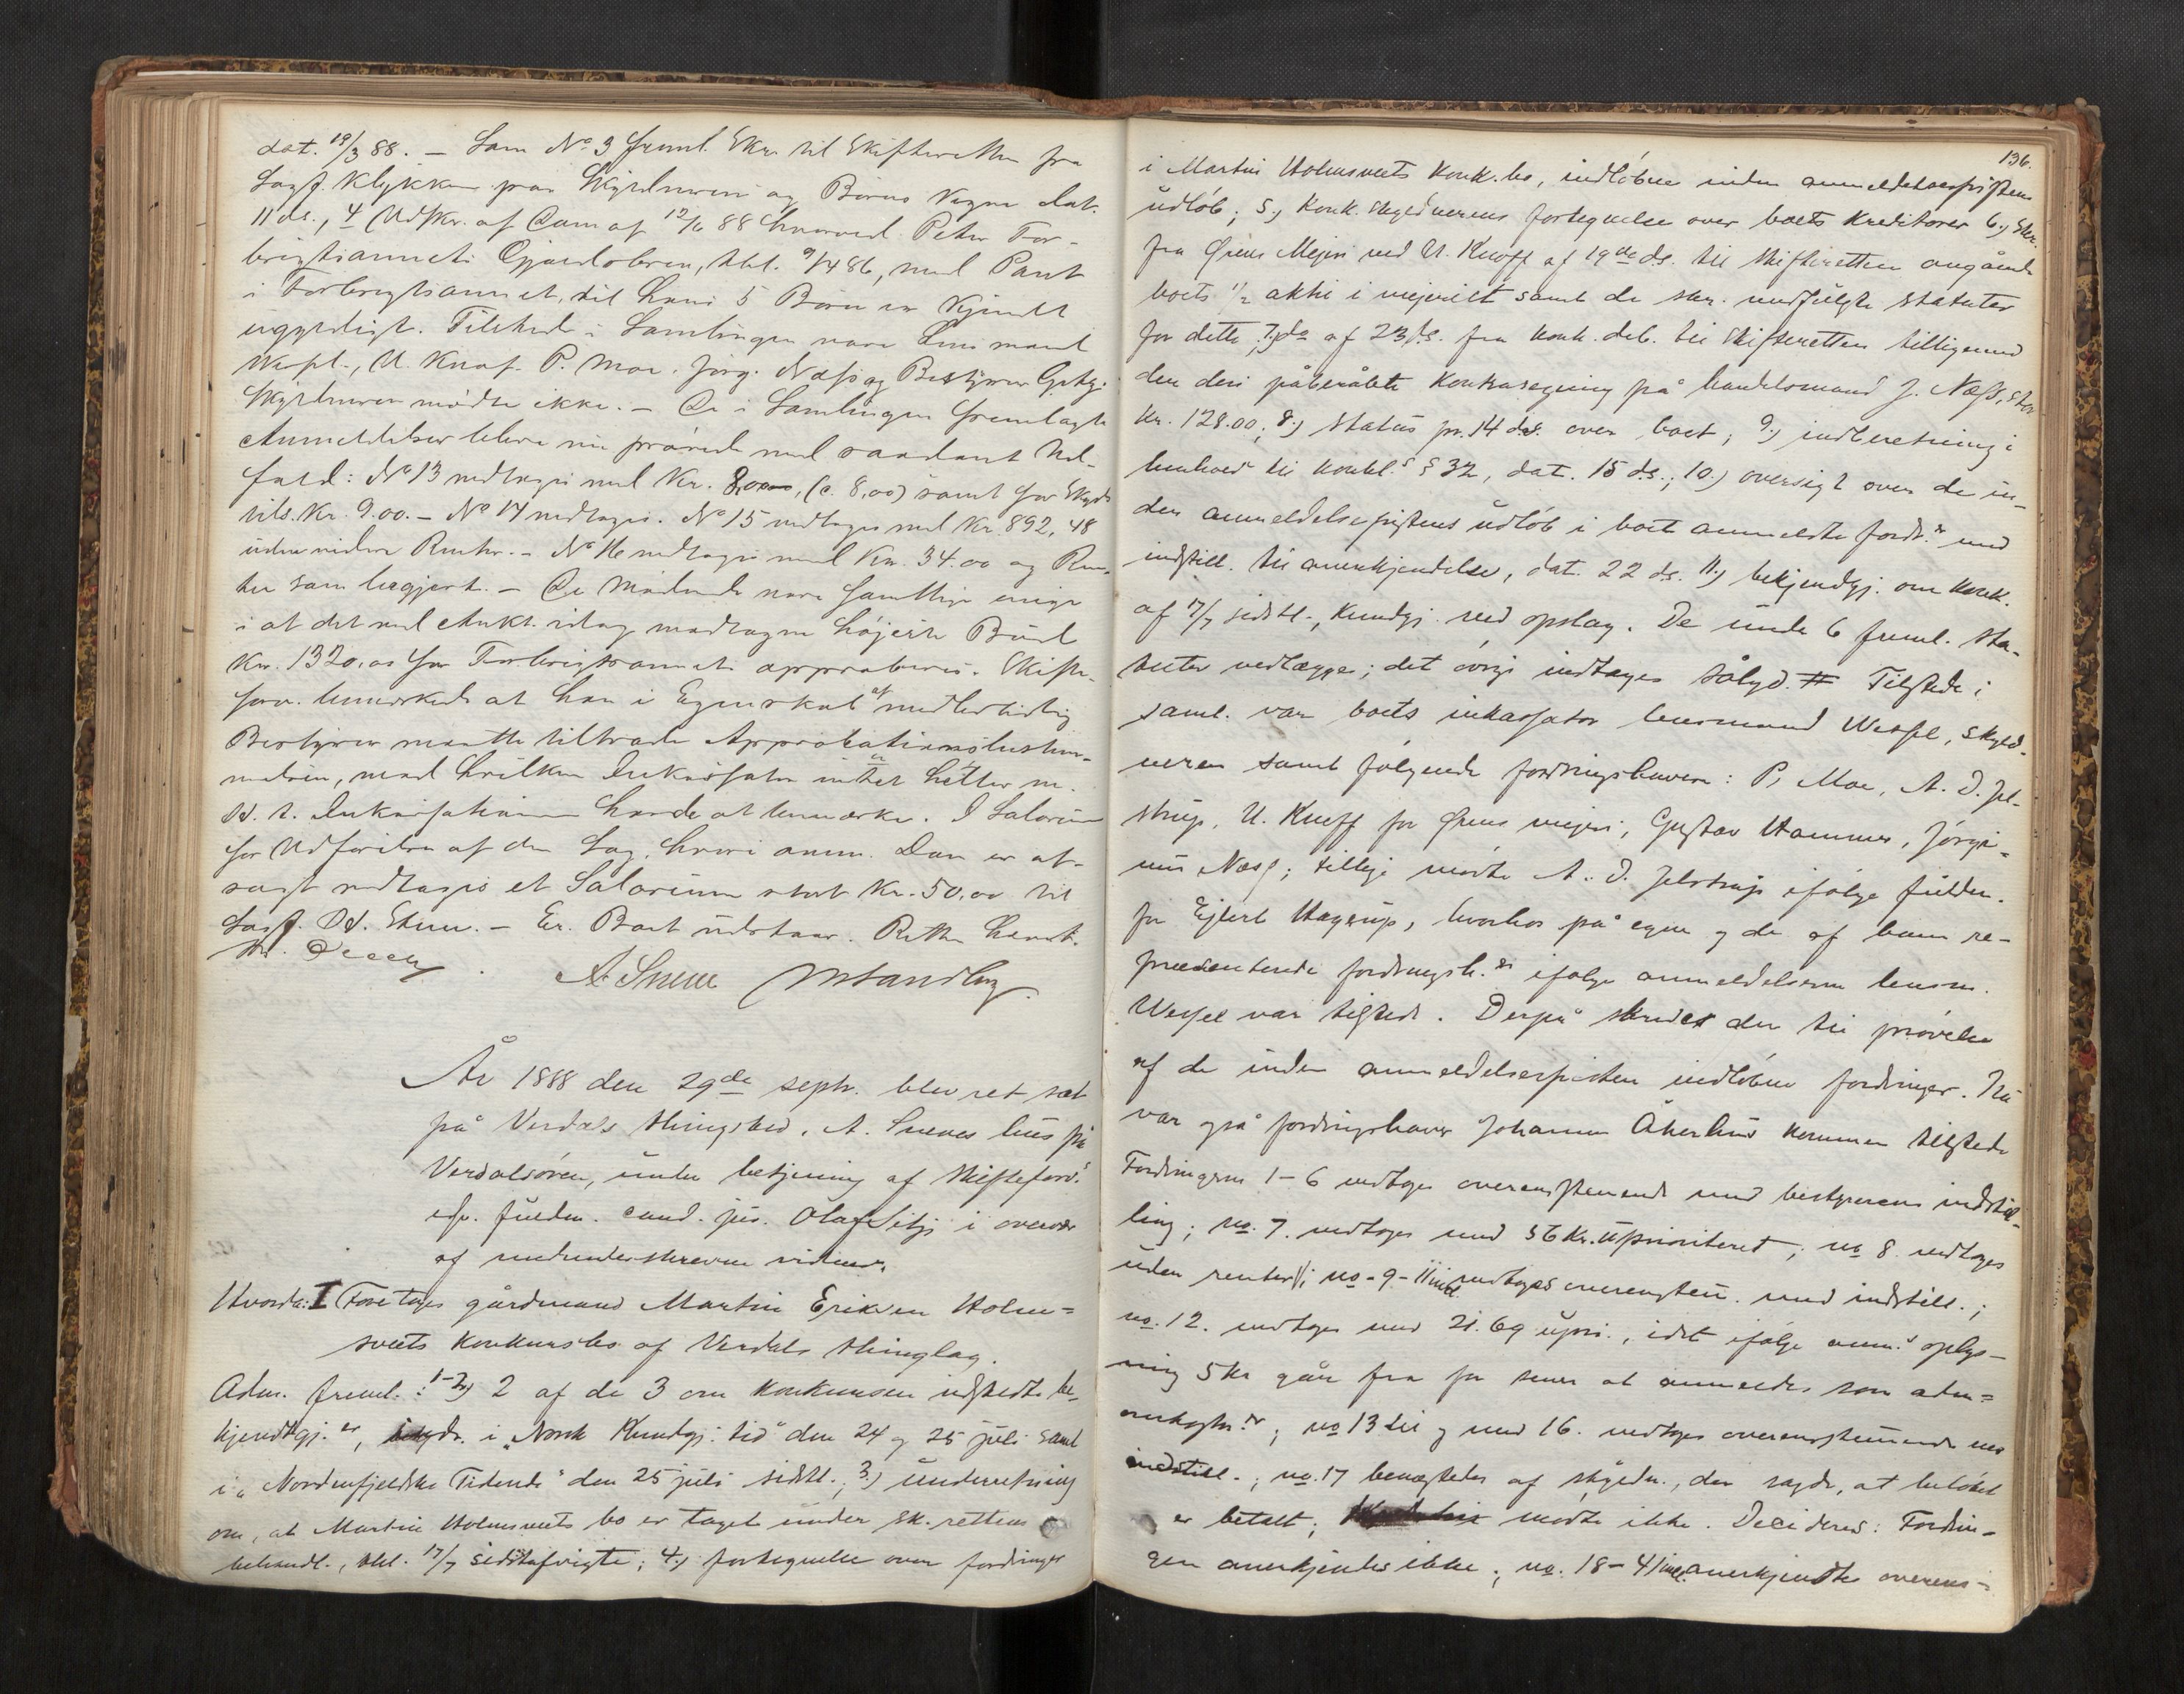 dat. 19/3 88. – Som No 3 freml. Skr. til Skifteretten fra
Sagf. Klykken paa Skyldneren og Børns Vegne dat.
11 ds., 4 Udskr. af Dom af 12/6 88 hvorved Peter For-
brigtsannets Gjældsbrev, thl. 9/4 86, med Pant
i Forbrigtsannet, til hans 5 Børn er kjendt
ugyldigt. Tilstede i Samlingen vare Lensmand
Wessel, U. Knof. P. Moe. Jørg. Næss og Bestyrer
Skyldneren mødte ikke. – De i Samlingen fremlagte
Anmeldelser bleve nu prøvede med saadant Ud-
fald: No 13 vedtages med Kr. 8,00, (c. 8,00) samt for Skyds
tils. Kr. 9.00. – No 14 vedtages. No 15 vedtages med Kr. 892,48
uden videre Renter. – No 16 vedtages med Kr. 34.00 og Ren-
ter som begjært. – De Mødende vare samtlige enige
i at det ved Aukt. idag modtagne høieste Bud
Kr. 1320,00 for Forbrigtsannet approberes. Skifte-
forv. bemærkede at han i Egenskab af midlertidig
Bestyrer maatte tiltræde Approbationsbestem-
melsen, mod hvilken Inkassator intet heller
Inkassationen havde at bemærke. I Salarium
for Udførelsen af den Sag, hvori anm. Dom er af-
sagt vedtages et Salarium stort Kr. 50,00 til
Sagf. O. Steen. – Er. Boet udstaar. Retten hævet.
A. Snem M Sandberg.
År 1888 den 29de septr. blev ret sat
på Verdals thingsted, A. Snemes hus på
Verdalsøren, under betjening af skifteforv.s
edsv. fuldm. cand. jur. Olaf Sitje i overvær
af medunderskrevne vidner.
Hvorda: I Foretoges gårdmand Martin Eriksen Holm=
sveets konkursbo af Verdals thinglag.
Adm. freml.: 1-2) 2 af de 3 om konkursen udstedte be-
kjendtgj.er, indr. i „Norsk Kundgj. tid" den 24 og 25 juli samt
i „Nordenfjeldske Tidende" den 25 juli sidstl.; 3) underretning
om, at Martin Holmsveets bo er taget under sk. rettens
behandl., thl. 17/7 sidstafvigte; 4.) fortegnelse over fordringer
136.
i Martin Holmsveets konk.bo, indløbne inden anmeldelsesfristens
udløb; 5.) Konk. skyldnerens fortegnelse over boets kreditorer 6.) Skr.
fra Ørens Mejeri ved U. Knoff af 19de ds. til skifteretten angående
boets 1/2 aktie i mejeriet samt de skr. medfulgte statuter
for dette; 7.) do af 23 ds. fra konk. deb. til skifteretten tilligemed
den deri påberåbte kontraregning på handelsmand J. Næss, stor
kr. 128.00; 8.) status pr. 14 ds. over boet; 9.) indberetning i
henhold til konkl.s § 32, dat. 15 ds.; 10.) oversigt over de in-
den anmeldelsesfristens udløb i boet anmeldte fordr.er med
indstill. til anerkjendelse, dat. 22 ds. 11.) bekjendtgj. om konk.
af 17/7 sidstl., kundgj. ved opslag. De under 6 freml. sta-
tuter vedlægges; det øvrige indtages sålyd. # Tilstede i
saml. var boets inkassator lensmand Wessel, skyld-
neren samt følgende fordringshavere: P. Moe, A. D. Jel-
strup, U. Knoff for Ørens mejeri, Gustav Hammer, Jørgi-
nus Næss; tillige mødte A. D. Jelstrup ifølge fuldm.
for Ejlert Hagerup, hvorhos på egne og de af ham re-
præsenterede fordringsh.er ifølge anmeldelserne lensm.
Wessel var tilstede. Derpå skredes der til prøvelse
af de inden anmeldelsesfristen indløbne fordringer. Nu
var også fordringshaver Johannes Åkerhus kommen tilstede
Fordringerne 1-6 vedtoges overensstemmende med bestyrerens indstil-
ling; no. 7. vedtoges med 56 kr. uprioriteret; no 8. vedtoges
uden renter; no. 9-11 incl. vedtoges overensstem. med indstill.;
no. 12. vedtoges med 21.69 upri., idet ifølge anm.s oplys-
ning 5 kr går fra for senere at anmeldes som adm=
omkostn.er; no 13 til og med 16. vedtoges overensstemmende med
indstill.; no. 17 benægtedes af skyldn., der sagde, at beløbet
er betalt; mødte ikke. Decideres: Fordrin-
gen anerkjendes ikke; no. 18-41 incl. anerkjendtes overens-